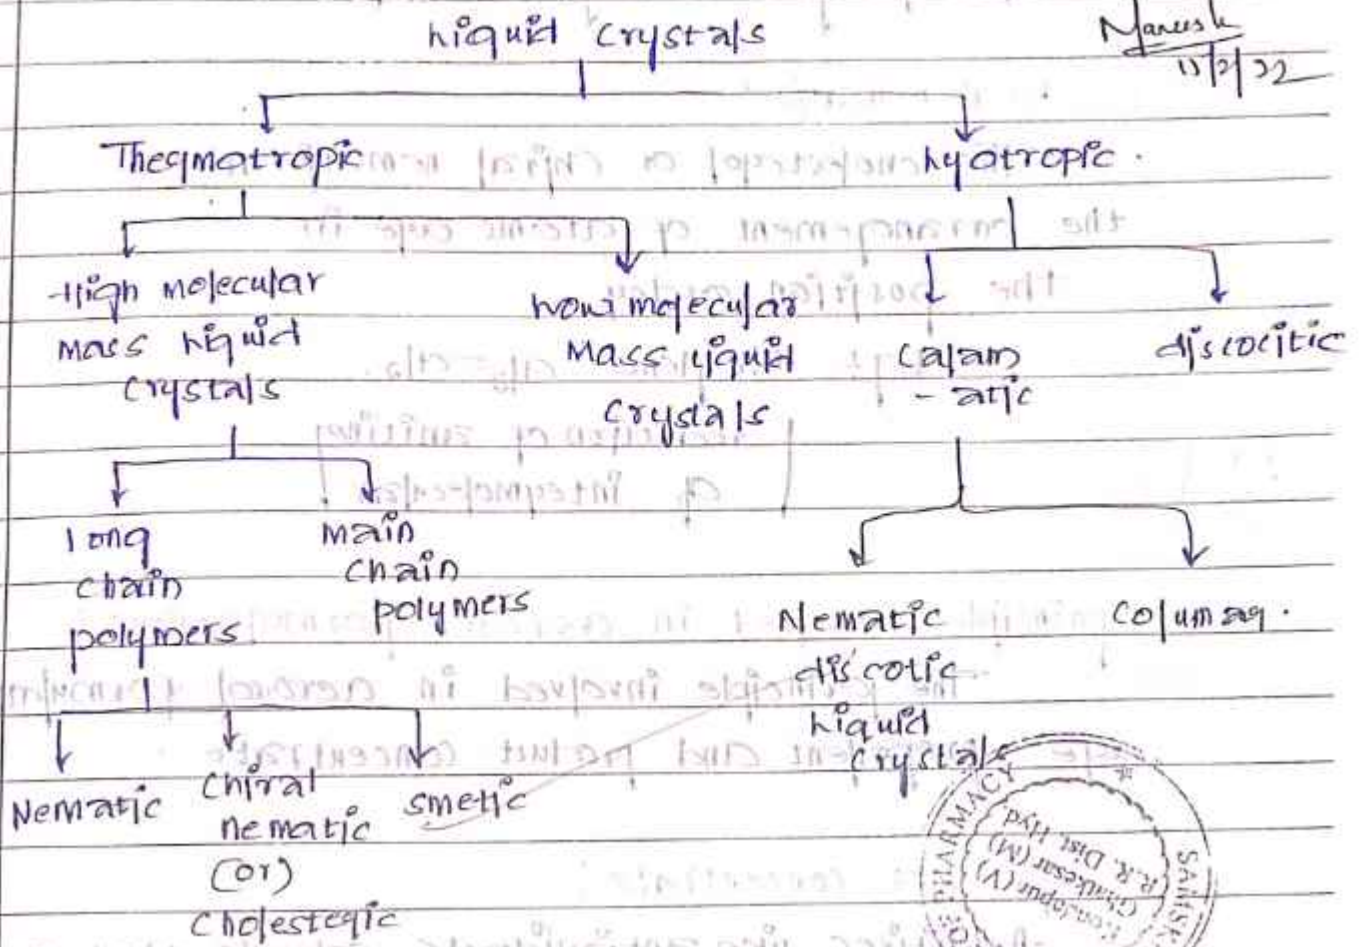 Liquid Crystals
Mareesh
11/2/22
Theqmotropic
Lyotropic.
High molecular
mass liquid
crystals
Low molecular
Mass liquid
Crystals
Calam
- atic
discocitic
long
chain
polymers
main
chain
polymers
Nematic
discotic
liquid
crystals
Columaq.
Nematic
Chiral
nematic
(or)
Cholesteqic
smetic
PHARMACY
SAMSK
Kondapur (V)
Ghatkesar (M)
R.R. Dist. Hyd.